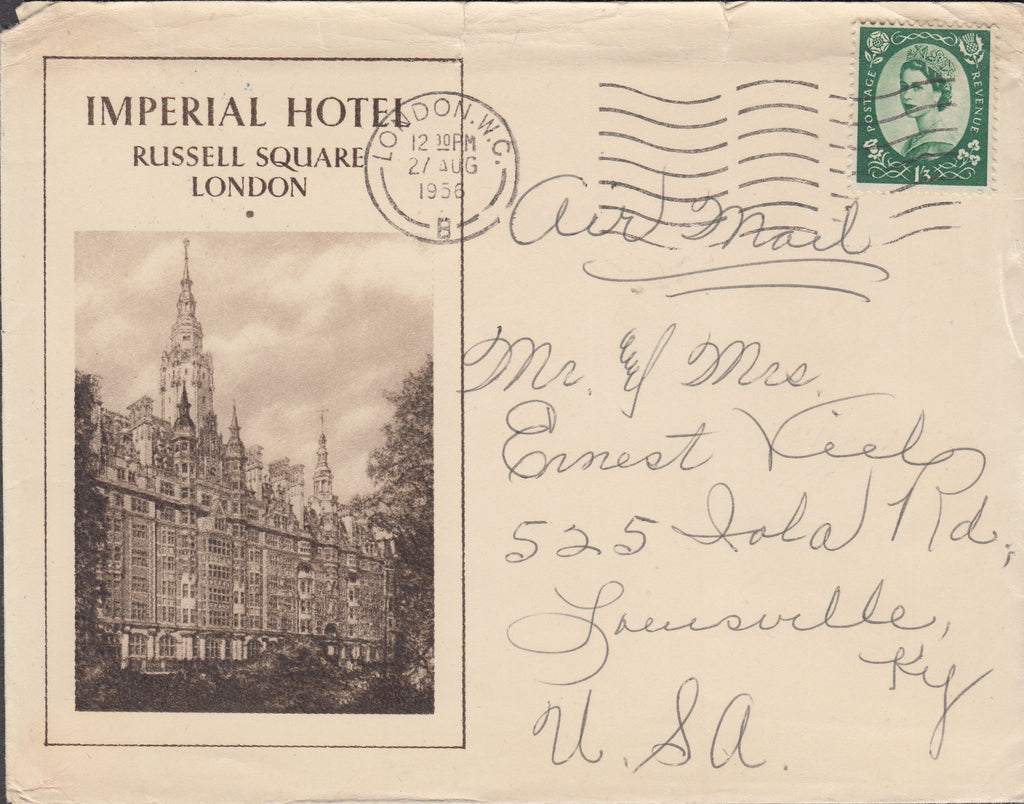 IMPERIAL HOTEL
RUSSELL SQUARE
LONDON
LONDON. W.C.
12 30 PM
27 AUG
1956
B
POSTAGE
REVENUE
1/3
Air Mail
Mr. & Mrs.
Ernest Viel
525 Iola Rd.,
Louisville,
Ky
U.S.A.